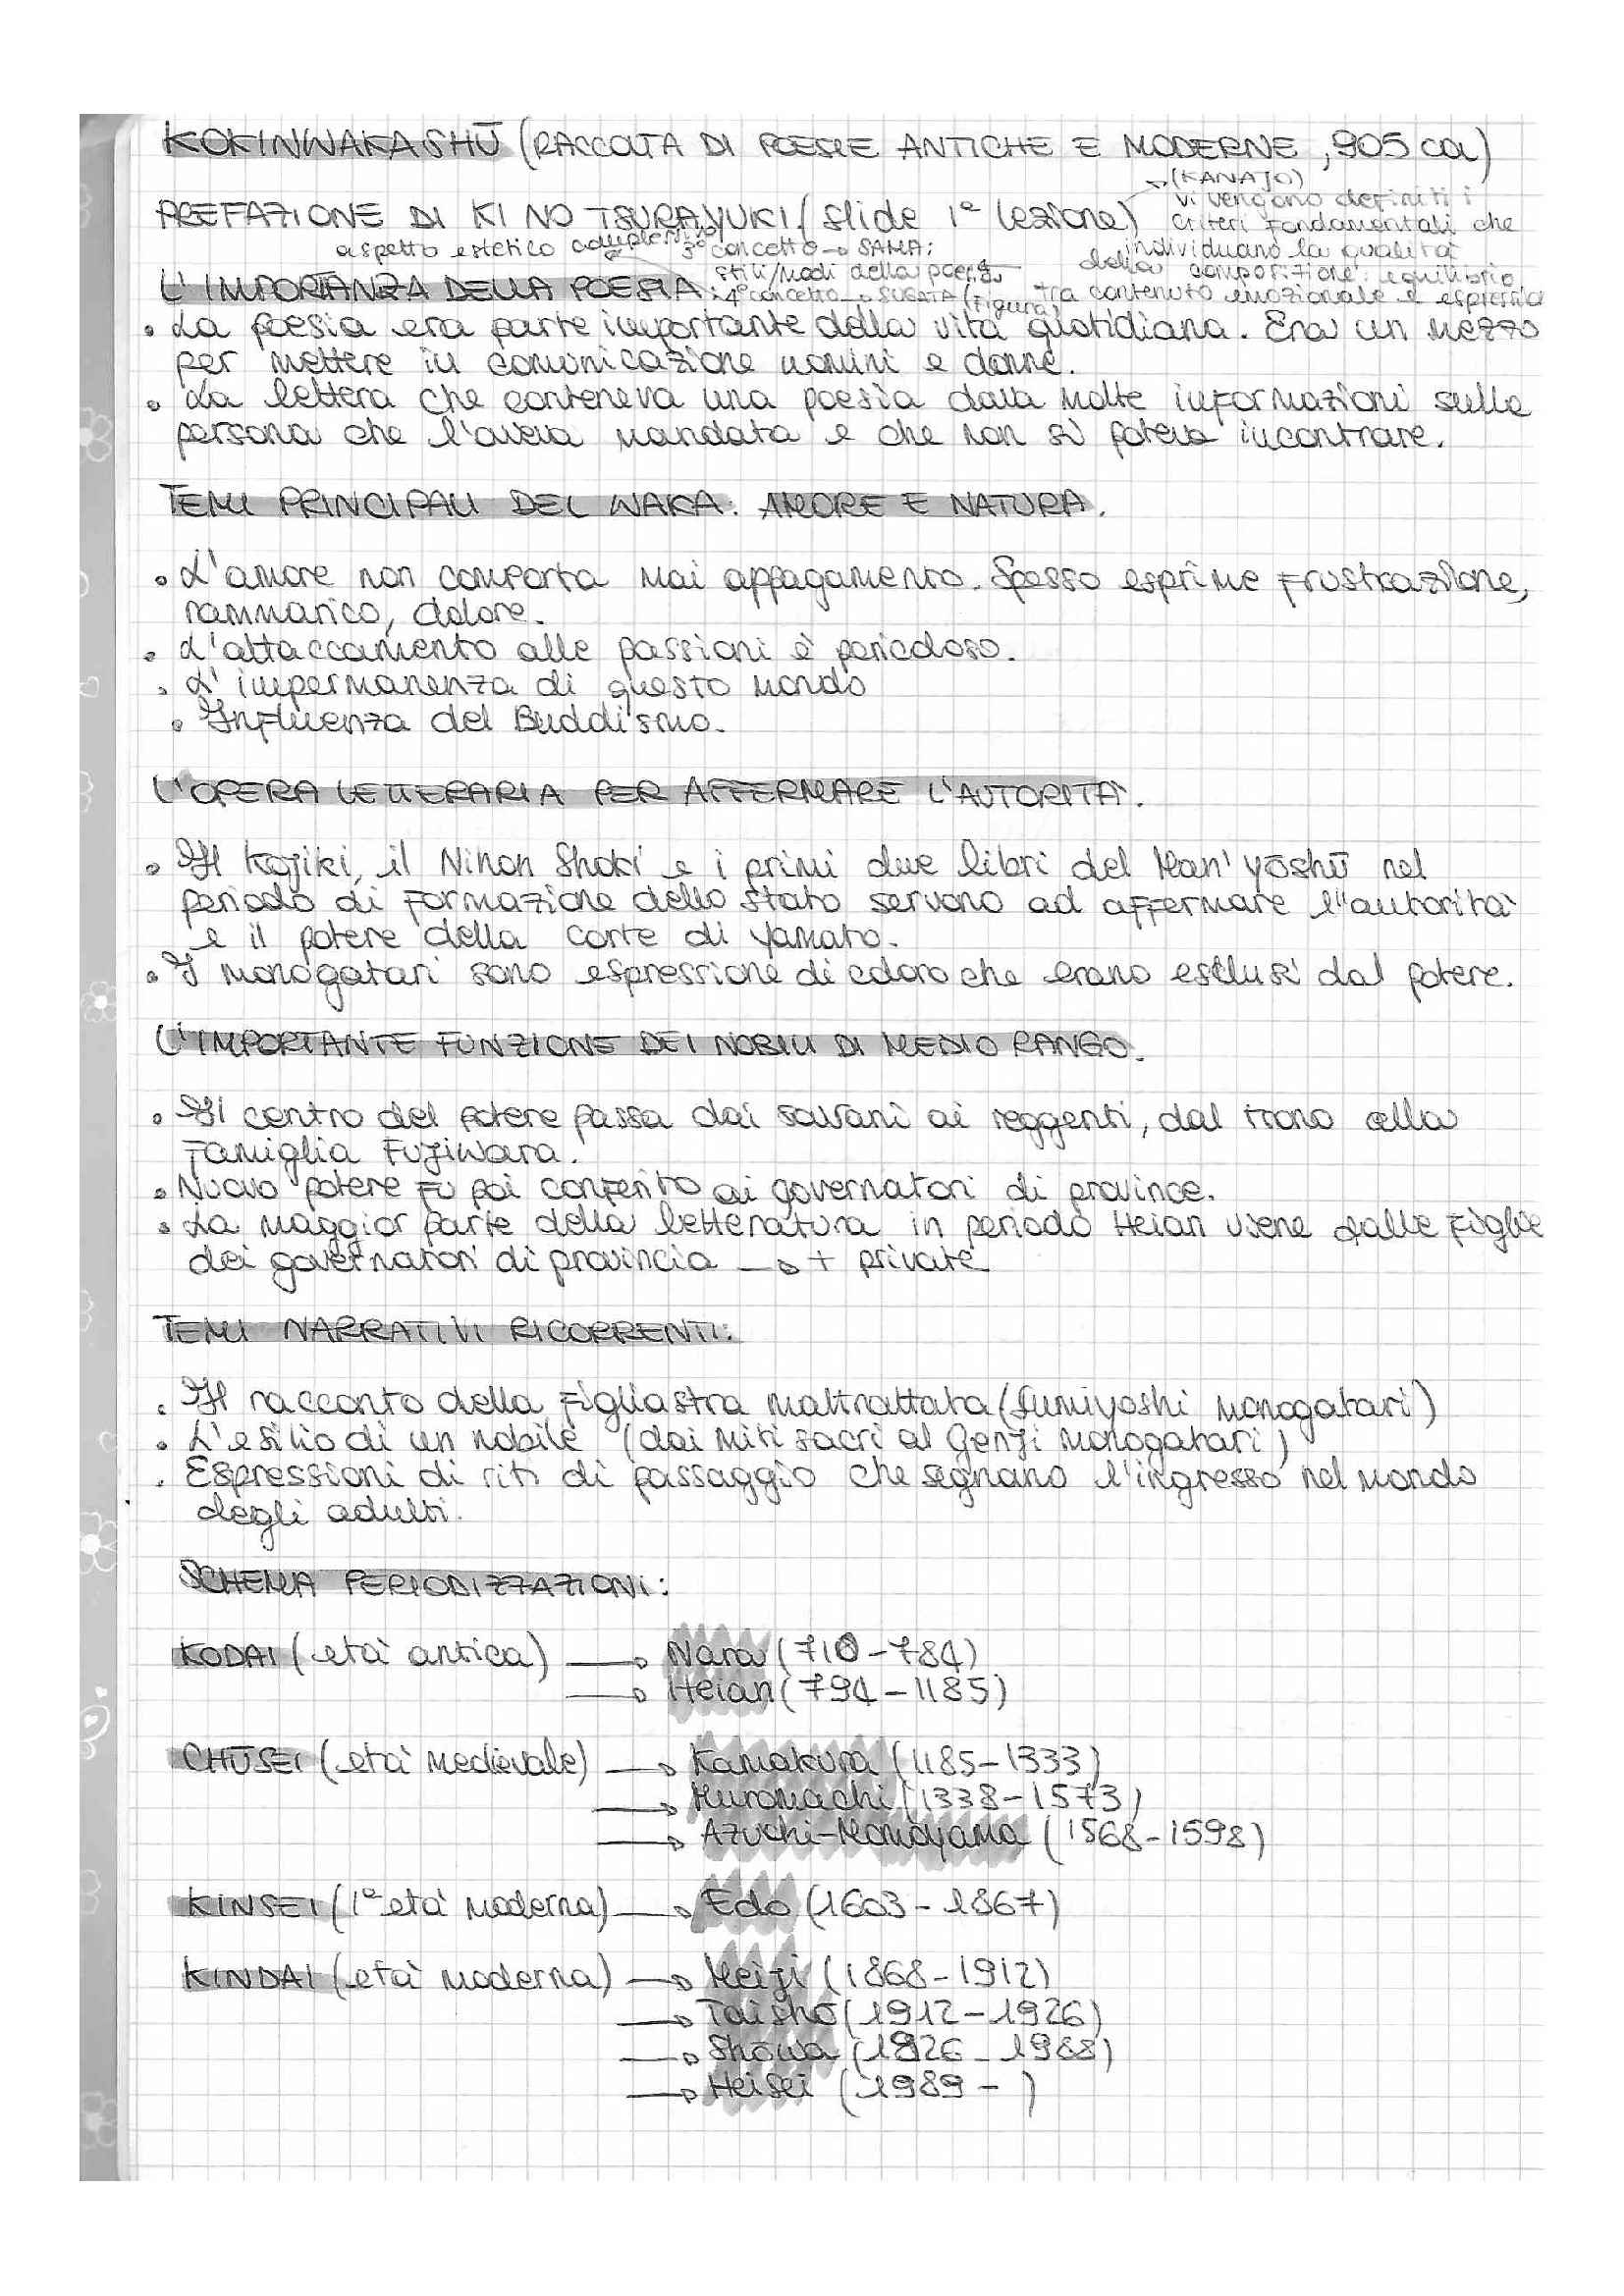 KOKINWAKASHŪ (RACCOLTA DI POESIE ANTICHE E MODERNE, 905 ca)
(KANAJO)
PREFAZIONE DI KI NO TSURAYUKI (slide 1ª lezione)
vi vengono definiti i
criteri fondamentali che
individuano la qualità
della composizione: equilibrio
tra contenuto emozionale e espressivo
aspetto estetico complessivo
3º concetto → SAMA:
stili/modi della poesia
4º concetto → SUGATA (figura)
L'IMPORTANZA DELLA POESIA:
• La poesia era parte importante della vita quotidiana. Era un mezzo
per mettere in comunicazione uomini e donne.
• La lettera che conteneva una poesia dava molte informazioni sulla
persona che l'aveva mandata e che non si poteva incontrare.
TEMI PRINCIPALI DEL WAKA: AMORE E NATURA.
• L'amore non comporta mai appagamento. Spesso esprime frustrazione,
rammarico, dolore.
• L'attaccamento alle passioni è pericoloso.
• L'impermanenza di questo mondo
• Influenza del Buddismo.
L'OPERA LETTERARIA PER AFFERMARE L'AUTORITÀ.
• Il Kojiki, il Nihon Shoki e i primi due libri del Man'yōshū nel
periodo di formazione dello stato servono ad affermare l'autorità
e il potere della corte di Yamato.
• I monogatari sono espressione di coloro che erano esclusi dal potere.
L'IMPORTANTE FUNZIONE DEI NOBILI DI MEDIO RANGO.
• Il centro del potere passa dai sovrani ai reggenti, dal trono alla
famiglia Fujiwara.
• Nuovo potere fu poi conferito ai governatori di province.
• La maggior parte della letteratura in periodo Heian viene dalle figlie
dei governatori di provincia → + private
TEMI NARRATIVI RICORRENTI:
• Il racconto della figliastra maltrattata (Sumiyoshi monogatari)
• L'esilio di un nobile (dai miti sacri al Genji monogatari)
• Espressioni di riti di passaggio che segnano l'ingresso nel mondo
degli adulti.
SCHEMA PERIODIZZAZIONI:
KODAI (età antica) → Nara (710-784)
→ Heian (794-1185)
CHŪSEI (età medievale) → Kamakura (1185-1333)
→ Muromachi (1338-1573)
→ Azuchi-Momoyama (1568-1598)
KINSEI (1ª età moderna) → Edo (1603-1867)
KINDAI (età moderna) → Meiji (1868-1912)
→ Taishō (1912-1926)
→ Shōwa (1926-1988)
→ Heisei (1989- )